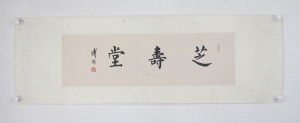 芝壽堂